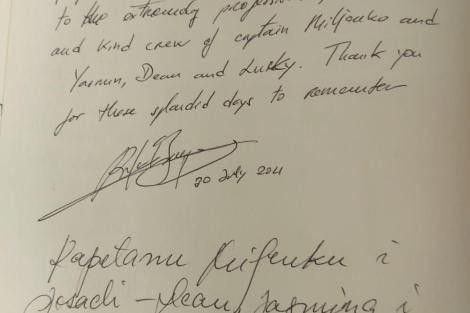 to the extremely professional
and kind crew of captain Miljenko and
Yasmin, Dean and Lusky. Thank you
for these splendid days to remember
30 July 2011
Kapetanu Miljenku i
posadi - Dean, Jasmina i